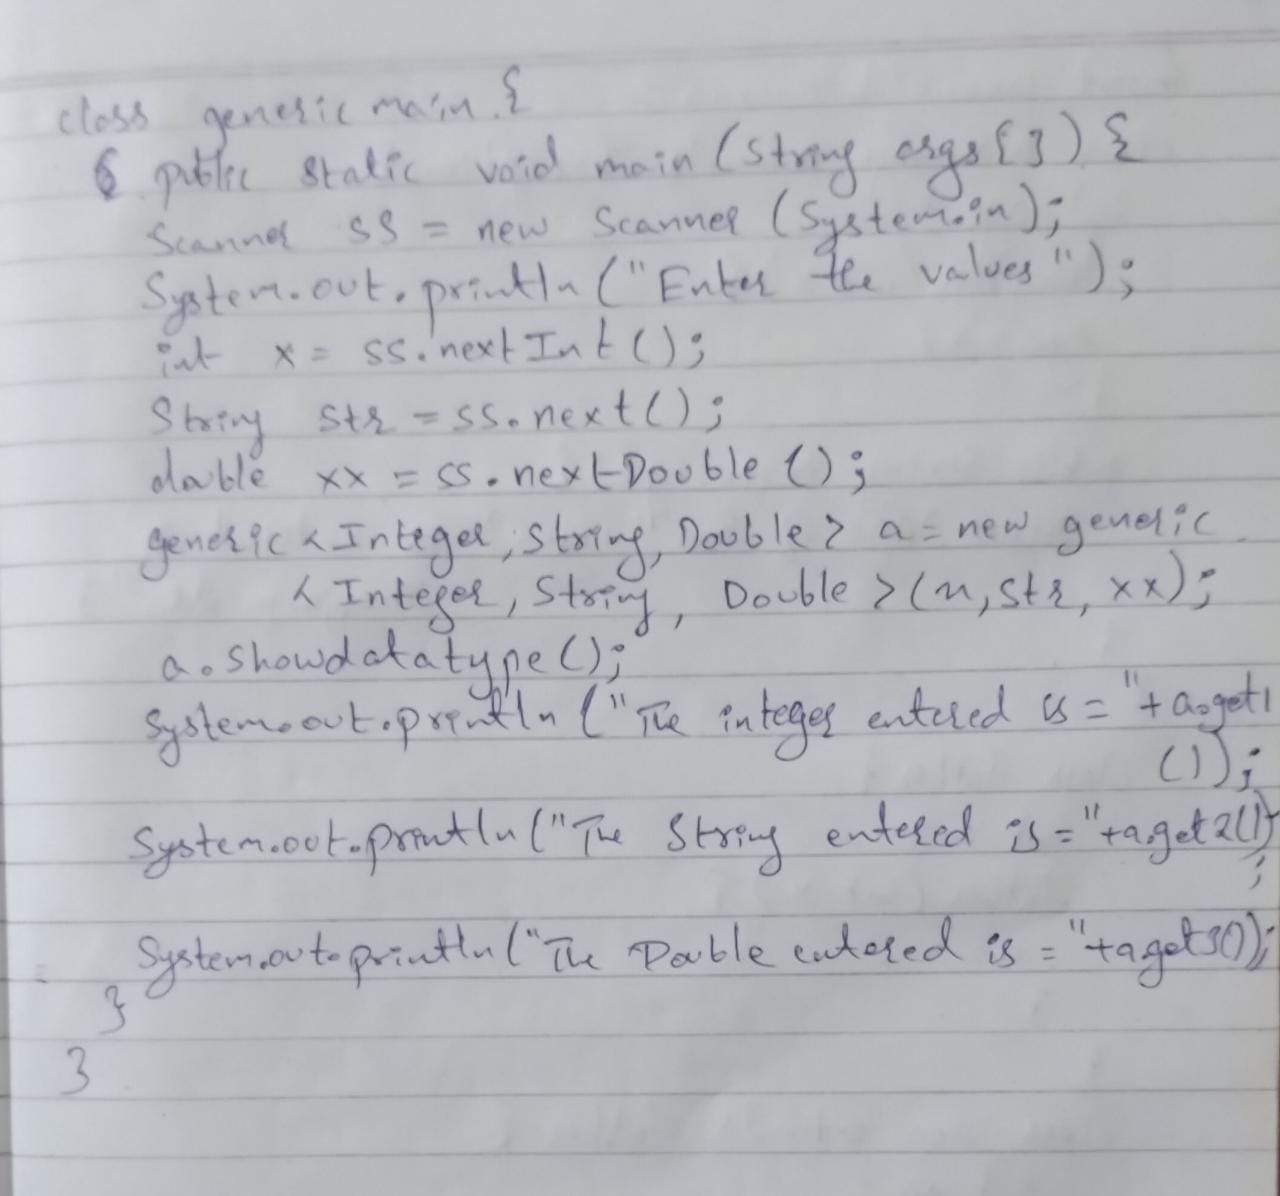 class generic main {
public static void main (String args {}) {
Scanner ss = new Scanner (System.in);
System.out.println ("Enter the values");
int x = ss.nextInt();
String str = ss.next();
double xx = ss.nextDouble ();
generic <Integer, String, Double> a = new generic
< Integer, String, Double > (n, str, xx);
a.showdatatype();
System.out.println ("The integer entered is = "+ a.get1
());
System.out.println ("The String entered is = "+a.get2())
;
System.out.println ("The Double entered is = "+a get3());
}
}